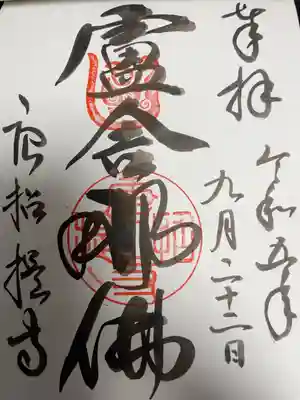 奉拝
令和五年
九月二十二日
盧舎那佛
唐招提寺